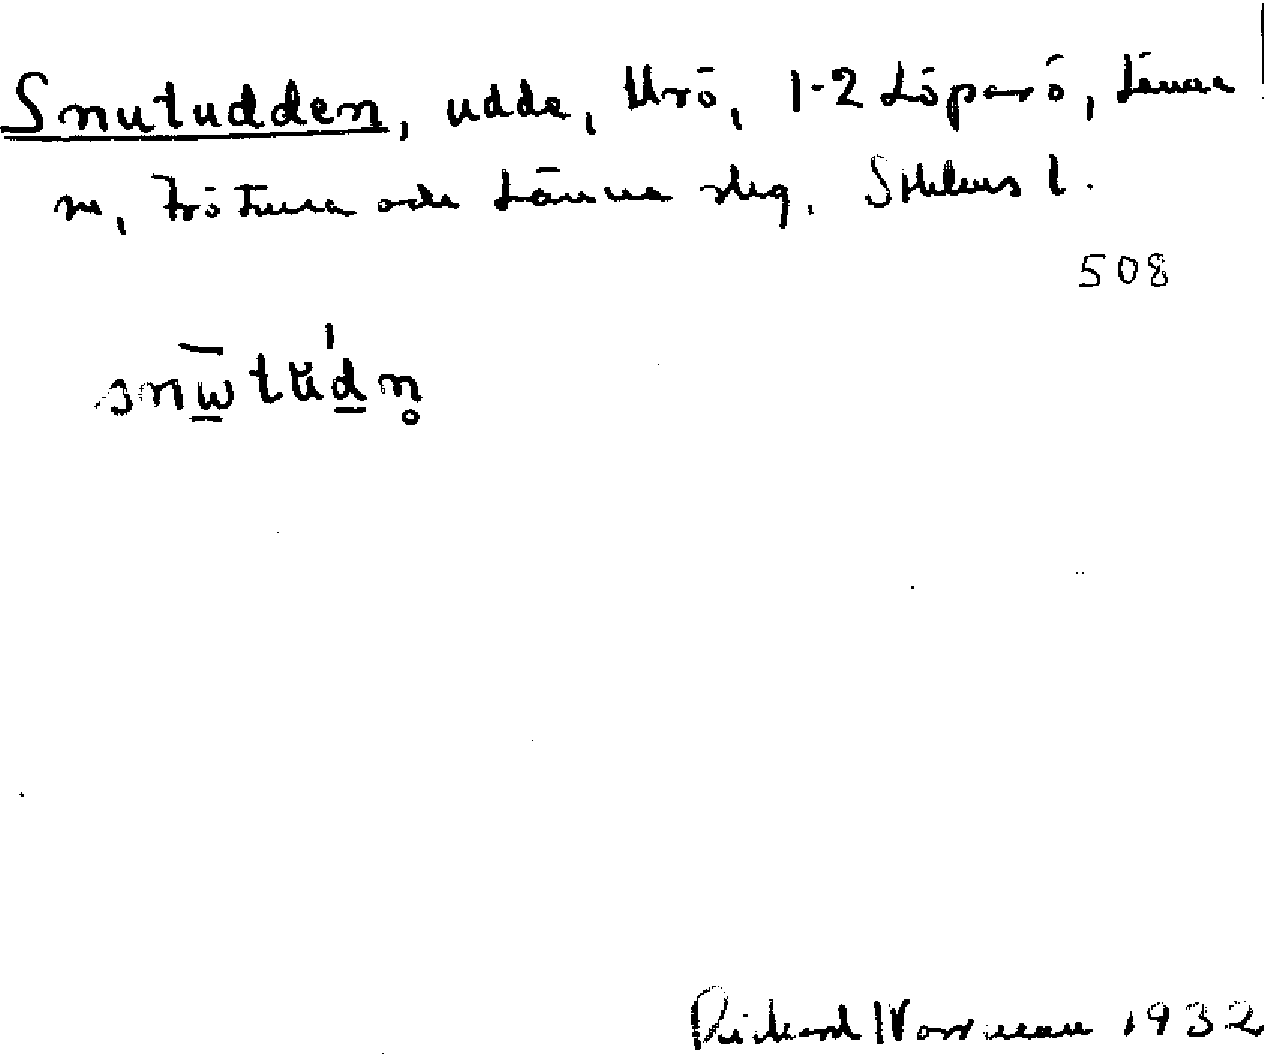 Snutudden, udde, Urö, 1-2 Löparö, Länna
sn, Frötuna och Länna slg, Sthlms l.
508
snw̱̄tŭ'ḏn̥
Rickard Norrman 1932